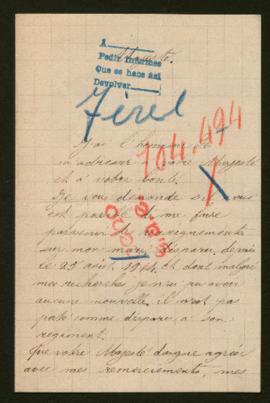 A
Pedir informes
Que se hace así
Devolver
Férel
704.494
J'ai l'honneur de
m'adresser à votre Majesté
et à votre bonté.
Je vous demande s'il vous
est possible de me faire
parvenir des renseignements
sur mon mari disparu depuis
le 25 août 1914, et dont malgré
mes recherches je n'ai pu avoir
aucune nouvelle. il n'est pas
porté comme disparu à son
régiment.
Que votre Majesté daigne agréer
avec mes remerciements, mes